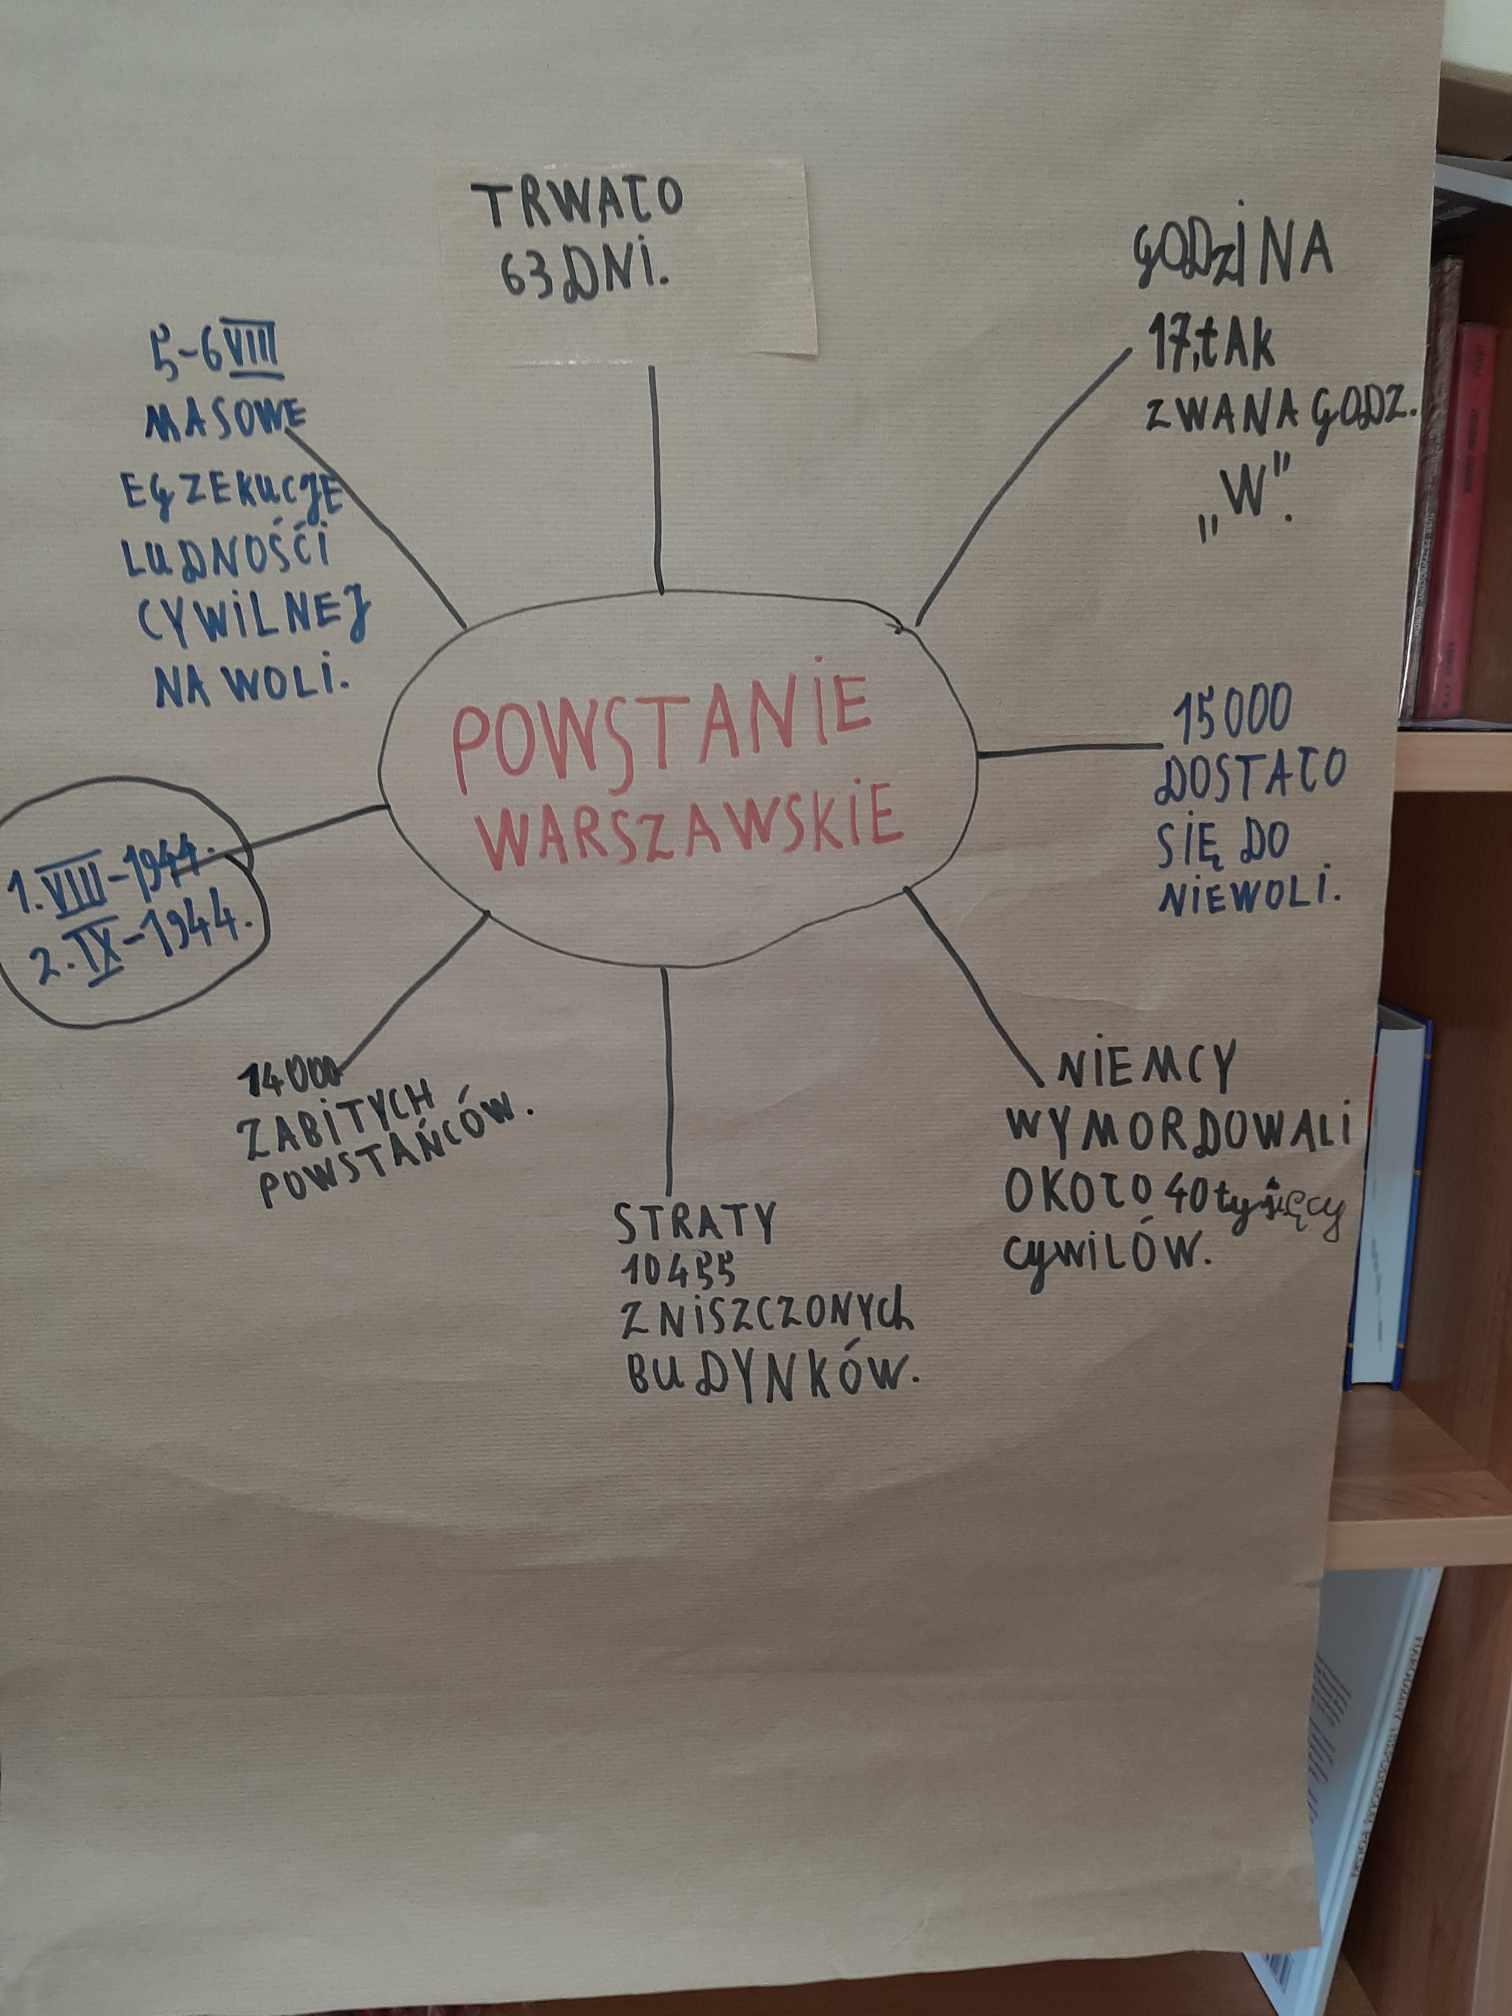 TRWAŁO
63 DNI.
GODZINA
17, tAK
ZWANA GODZ.
„W".
5-6 VIII
MASOWE
EGZEKUCJE
LUDNOŚĆI
CYWILNEJ
NA WOLI.
POWSTANIE
WARSZAWSKIE
15000
DOSTAŁO
SIĘ DO
NIEWOLI.
1. VIII-1944.
2. IX-1944.
14000
ZABITYCH
POWSTAŃCÓW.
NIEMCY
WYMORDOWALI
OKOŁO 40 tysięcy
cywiLÓW.
STRATY
10455
ZNISZCZONYch
BUDYNKÓW.